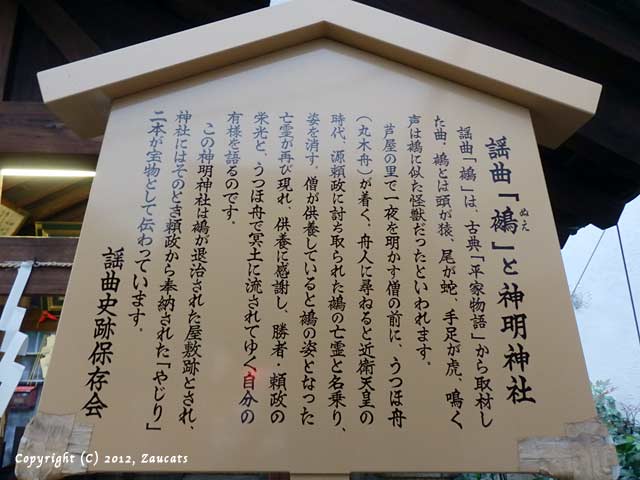 謡曲「鵺」と神明神社
ぬえ
謡曲「鵺」は、古典「平家物語」から取材し
た曲。鵺とは頭が猿、尾が蛇、手足が虎、鳴く
声は鵺に似た怪獣だったといわれます。
芦屋の里で一夜を明かす僧の前に、うつほ舟
(丸木舟)が着く。舟人に尋ねると近衛天皇の
時代、源頼政に討ち取られた鵺の亡霊と名乗り、
姿を消す。僧が供養していると鵺の姿となった
亡霊が再び現れ、供養に感謝し、勝者・頼政の
栄光と、うつほ舟で冥土に流されてゆく自分の
有様を語るのです。
この神明神社は鵺が退治された屋敷跡とされ、
神社にはそのとき頼政から奉納された「やじり」
二本が宝物として伝わっています。
謡曲史跡保存会
Copyright (C) 2012, Zaucats